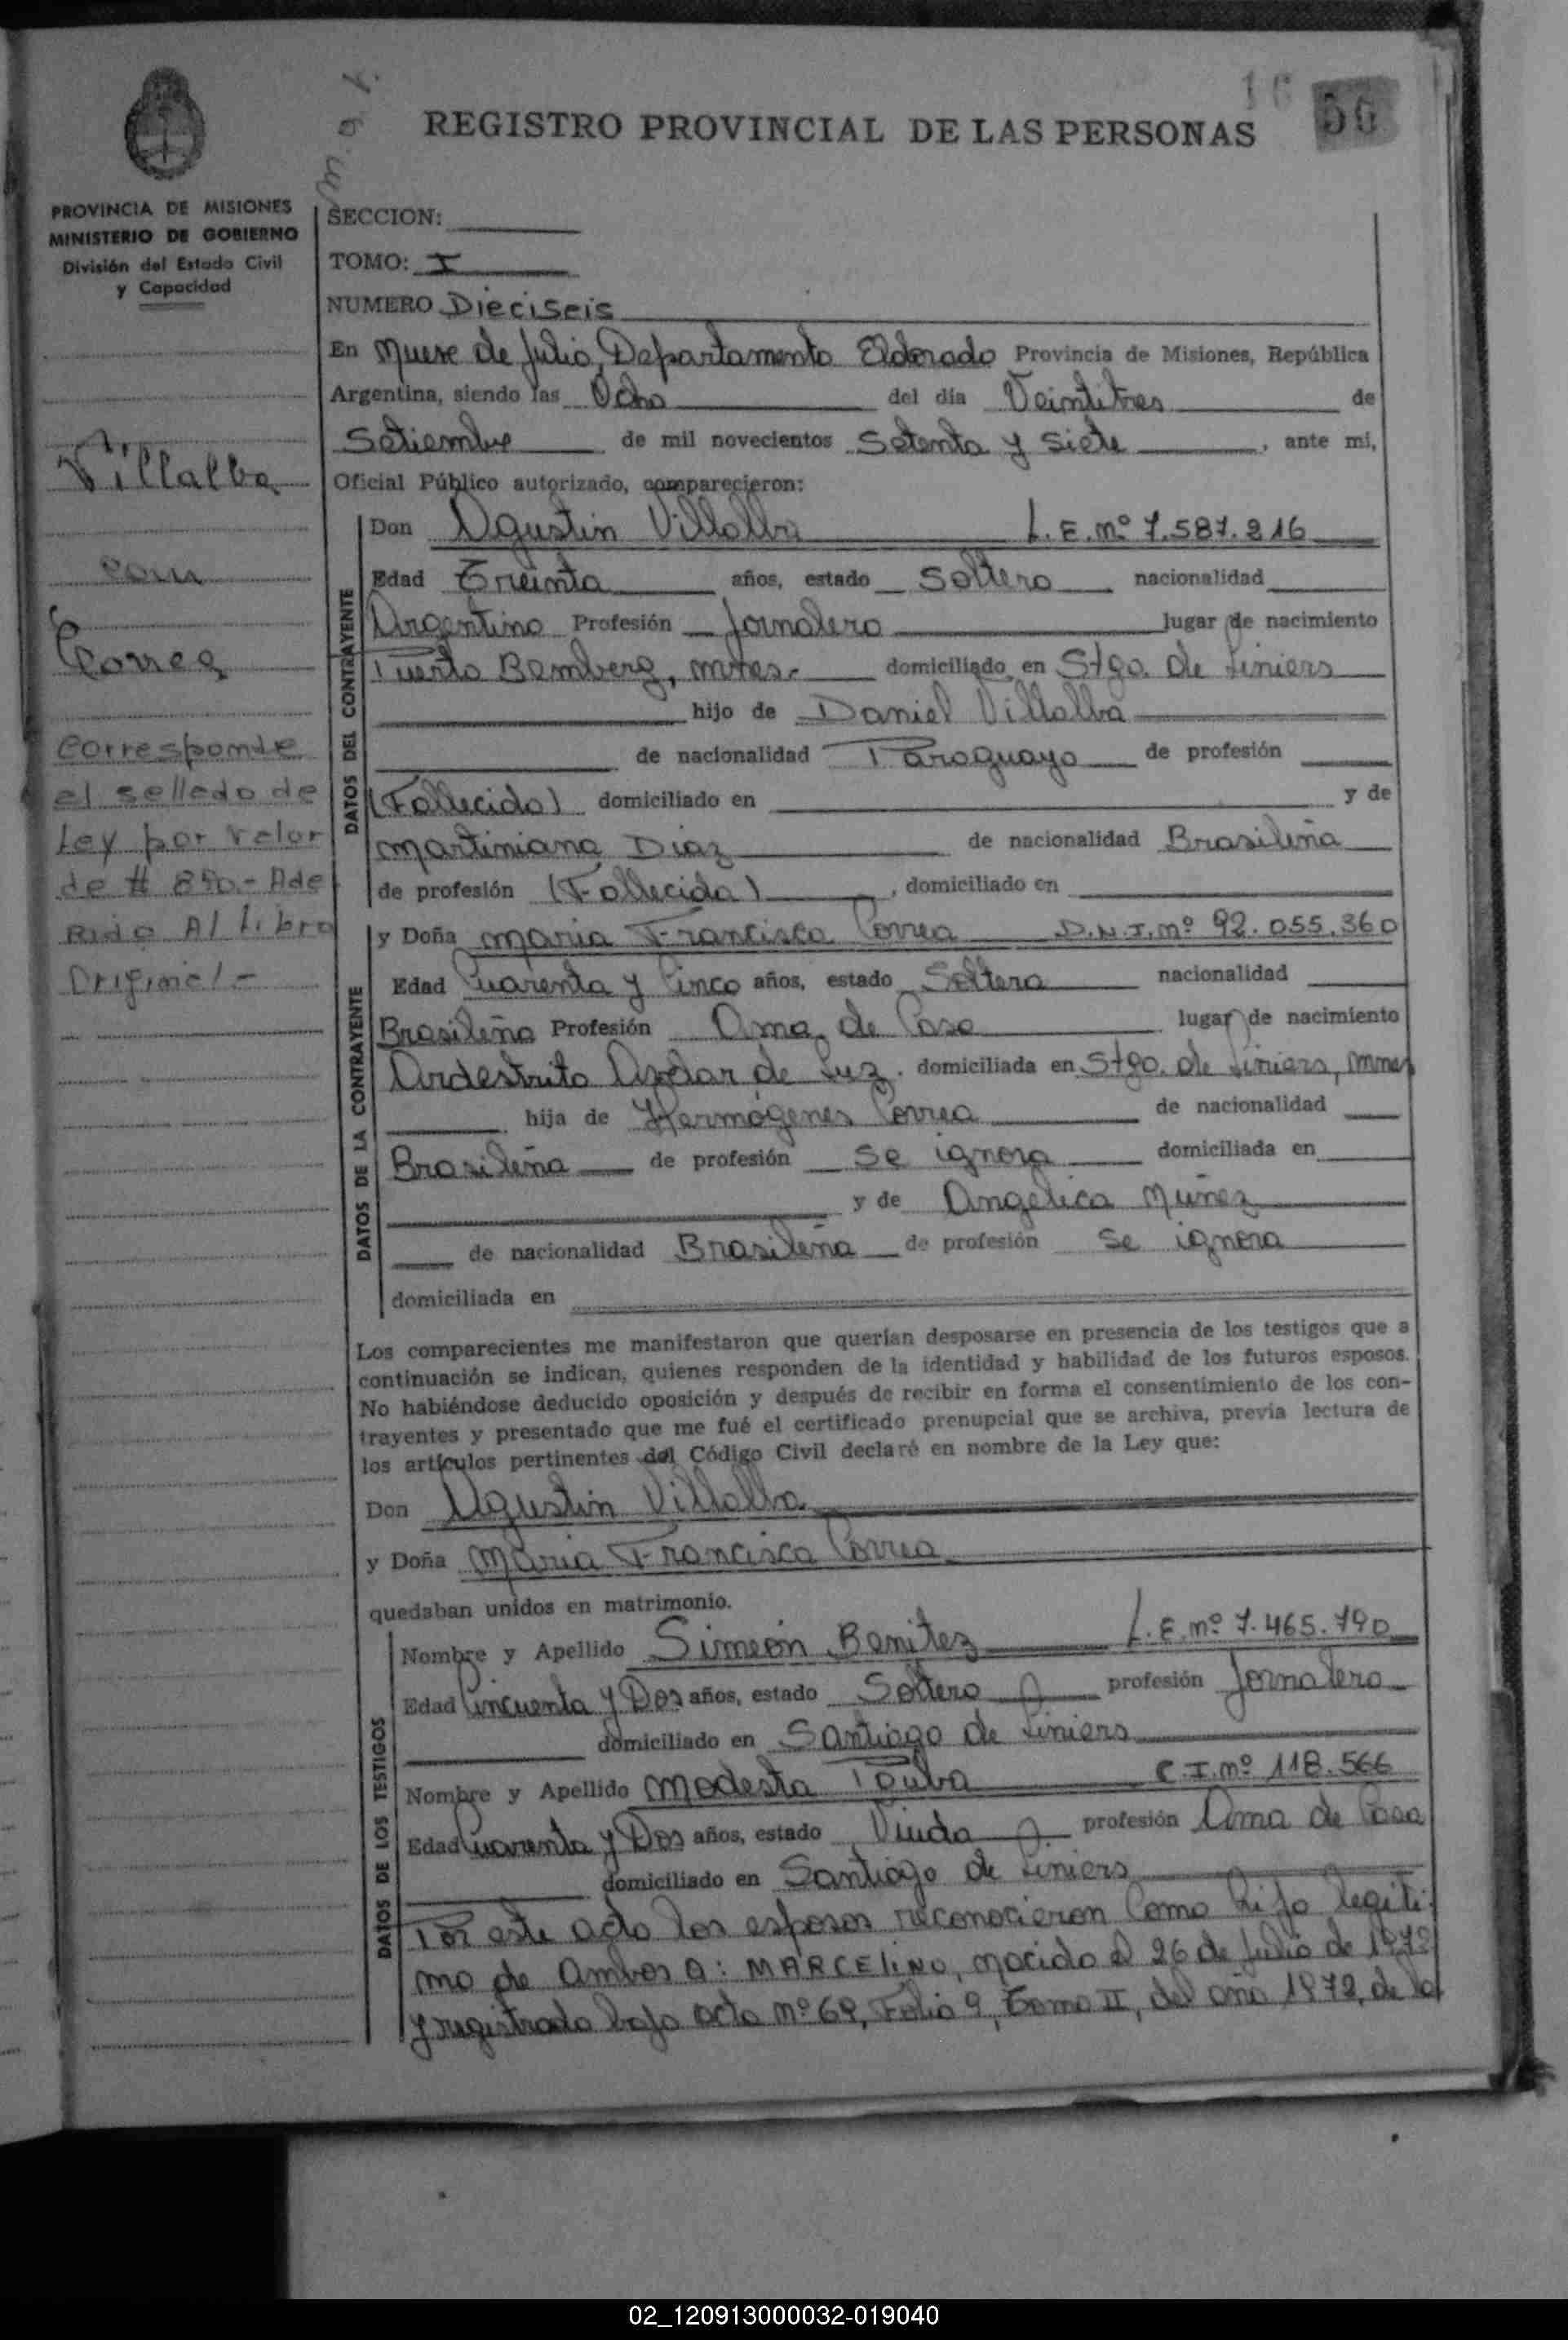 REGISTRO PROVINCIAL DE LAS PERSONAS
PROVINCIA DE MISIONES
MINISTERIO DE GOBIERNO
División del Estado Civil
y Capacidad
Villalba
con
Correa
Corresponde
el sellado de
Ley por valor
de $ 850.- Ade
Rido Al Libro
Original-
SECCION:
TOMO: I
NUMERO Dieciseis
En Nueve de Julio, Departamento Eldorado Provincia de Misiones, República
Argentina, siendo las Ocho del día Veintitres de
Setiembre de mil novecientos Setenta y Siete, ante mi,
Oficial Público autorizado, comparecieron:
DATOS DEL CONTRAYENTE
Don Agustin Villalba L.E.Nº 7.587.216
Edad Treinta años, estado Soltero nacionalidad
Argentino Profesión Jornalero lugar de nacimiento
Puerto Bemberg, Mnes.- domiciliado en Stgo. de Liniers
hijo de Daniel Villalba
de nacionalidad Paraguayo de profesión
(Fallecido) domiciliado en y de
Martiniana Diaz de nacionalidad Brasileña
de profesión (Fallecida), domiciliado en
DATOS DE LA CONTRAYENTE
y Doña Maria Francisca Correa D.N.I.Nº 92.055.360
Edad Cuarenta y Cinco años, estado Soltera nacionalidad
Brasileña Profesión Ama de Casa lugar de nacimiento
de Luz. domiciliada en Stgo. de Liniers, Mnes
hija de Hermógenes Correa de nacionalidad
Brasileña de profesión Se ignora domiciliada en
y de Angelica Muñez
de nacionalidad Brasileña de profesión Se ignora
domiciliada en
Los comparecientes me manifestaron que querían desposarse en presencia de los testigos que a
continuación se indican, quienes responden de la identidad y habilidad de los futuros esposos.
No habiéndose deducido oposición y después de recibir en forma el consentimiento de los con-
trayentes y presentado que me fué el certificado prenupcial que se archiva, previa lectura de
los artículos pertinentes del Código Civil declaré en nombre de la Ley que:
Don Agustin Villalba
y Doña Maria Francisca Correa
quedaban unidos en matrimonio.
DATOS DE LOS TESTIGOS
Nombre y Apellido Simeón Benitez L.E.Nº 7.465.790
Edad Cincuenta y Dos años, estado Soltero profesión Jornalero
domiciliado en Santiago de Liniers
Nombre y Apellido Modesta C.I.Nº 118.566
Edad Cuarenta y Dos años, estado Viuda profesión Ama de Casa
domiciliado en Santiago de Liniers
Por este acto los esposos reconocieron Como hijo legiti-
mo de Ambos a: MARCELINO, nacido el 26 de Julio de 1972
y registrado bajo acta Nº 69, Folio 9, Tomo II, del año 1972, de la
02_120913000032-019040